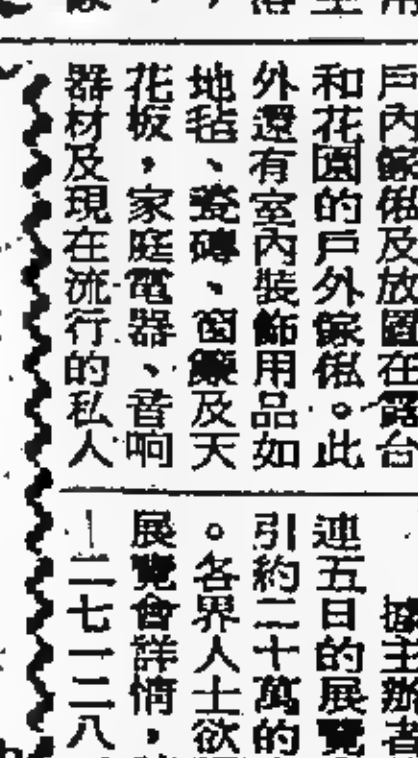 戶內傢俬及放置在露台
和花園的戶外傢俬。此
外還有室內裝飾用品如
地毡、瓷磚、窗簾及天
花板，家庭電器、音响
器材及現在流行的私人
據主辦者
連五日的展覽
引約二十萬的
。各界人士欲
展覽會詳情，
－二七一二八